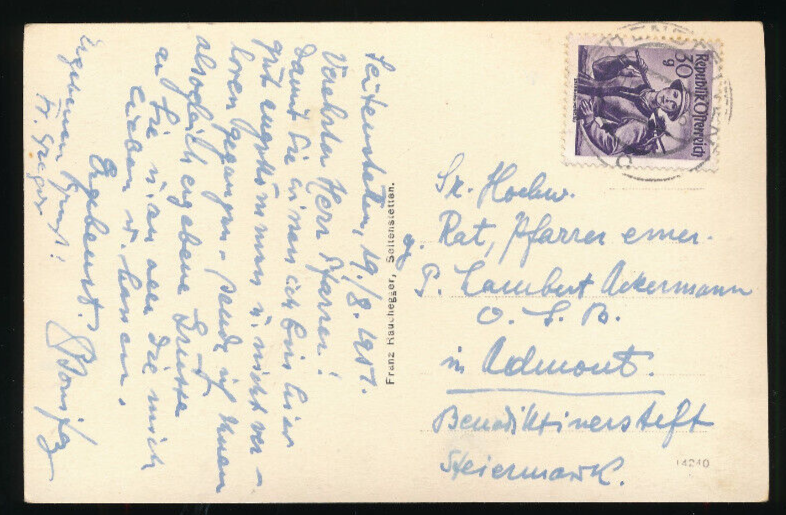 Seitenstetten, 19./8.1951.
Verehrter Herr Pfarrer!
Damit Sie wissen ich bin hier
gut angekommen u. nicht ver-
loren gegangen, sende ich Ihnen
alsogleich ergebene Grüsse
an Sie u. an alle die mich
lieben u. kennen.
Ergebenst.
Bonifaz
Ergebenen Gruss!
P. Gregor
Franz Rauchegger, Seitenstetten.
30 g
Republik Österreich
Sr. Hochw.
g. Rat, Pfarrer emer.
P. Lambert Ackermann
O. S. B.
in Admont.
Benediktinerstift
Steiermark.
14240